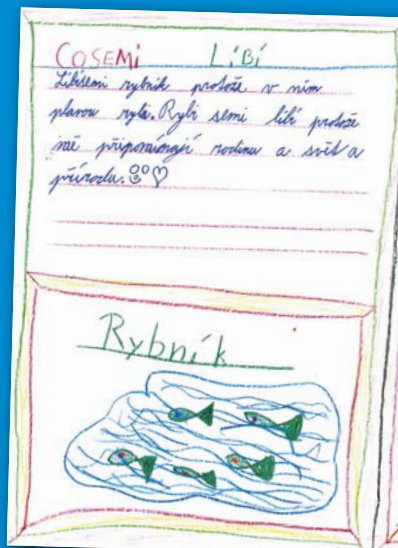 COSEMi LÍBÍ
Líbísemi rybník protože v ním
plavou ryby. Ryby semi líbí protože
mě připomínají rodinu a svět a
přírodu.
Rybník